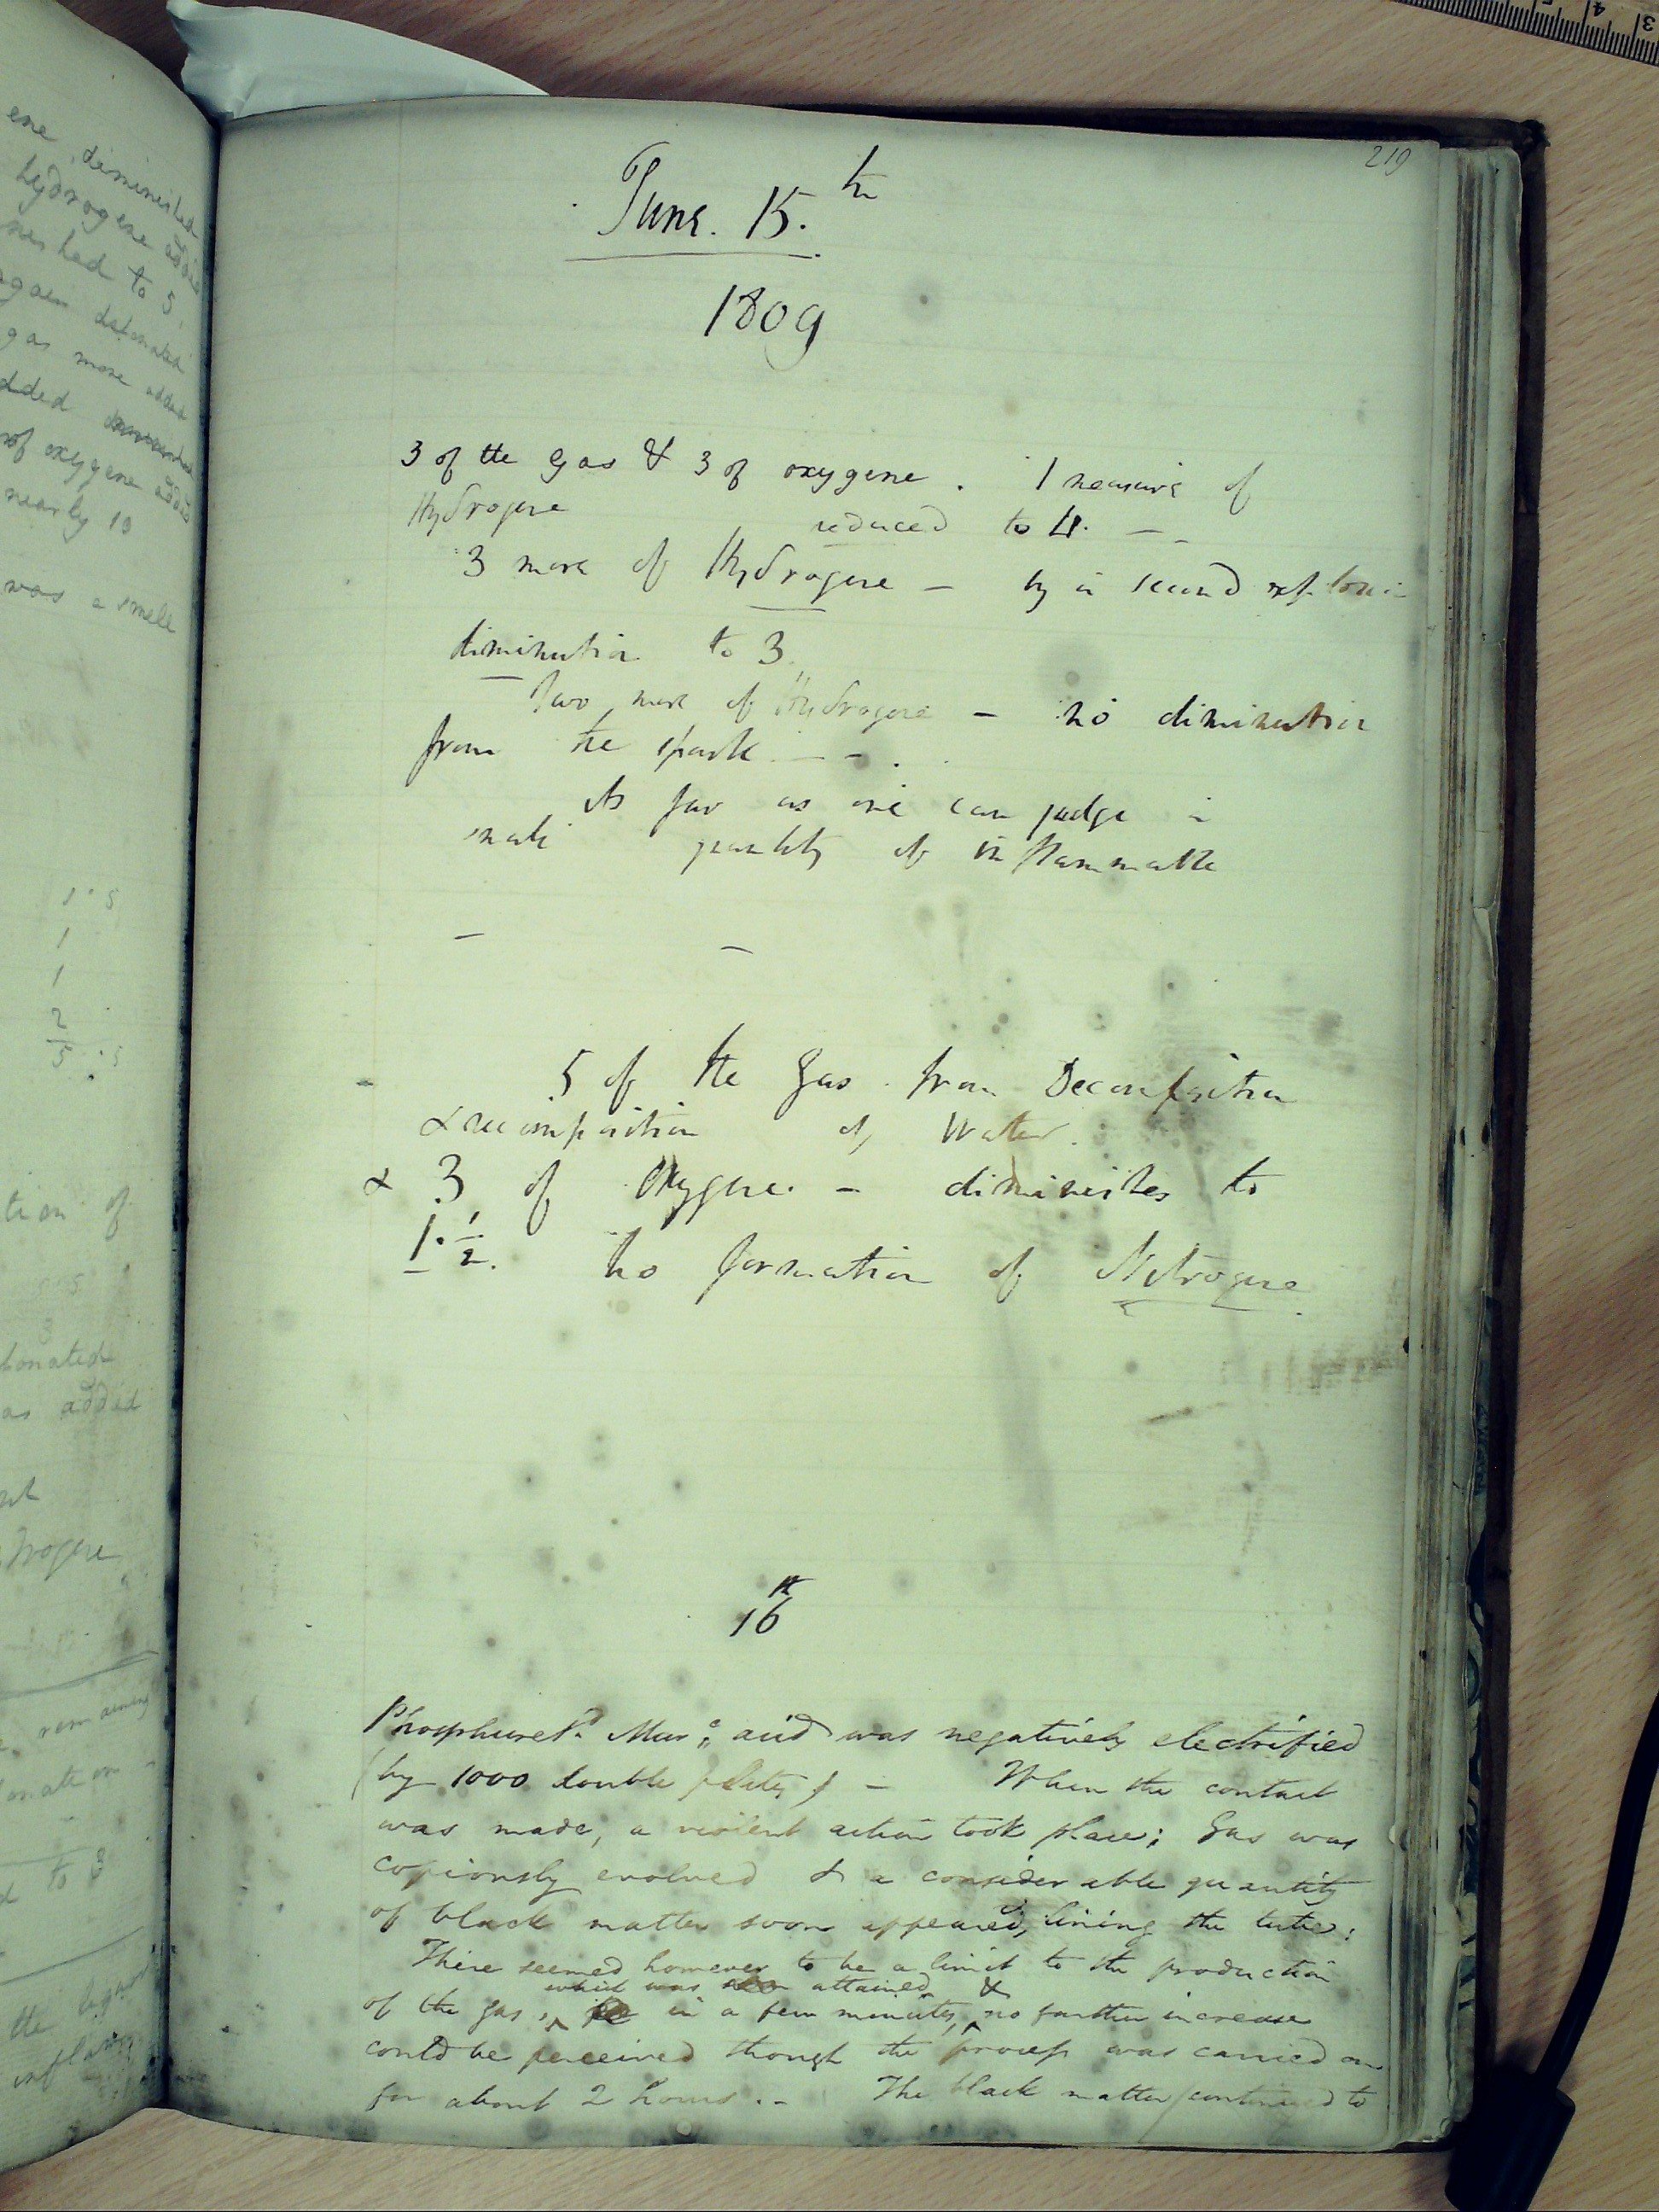 ene diminished
hydrogene added
nished to 5
again detonated
gas more added
added
of oxygene added
nearly 19
was a smell
1 · 5
1
1
2
5 · 5
tion of
3
tonated
as added
trogene
remaining
to 3
the liquor
inflam
219
June. 15.th
1809
3 of the gas & 3 of oxygene. 1 measure of
Hydrogene reduced to 4. - -
3 more of Hydrogene - by a second
diminution to 3.
Two more of Hydrogene - no diminution
from the spark - - .
As far as one can judge
quantity of inflammable
- -
5 of the gas from Decomposition
& recomposition of Water.
& 3 of Oxygene. - diminishes to
1·1/2. no formation of Nitrogene.
16th
Phosphuretd. Murc. acid was negatively electrified
(by 1000 double plates) - When the contact
was made, a violent action took place; gas was
copiously evolved & a considerable quantity
of black matter soon appeared, lining the tube:
There seemed however to be a limit to the production
which was attained &
of the gas, in a few minutes, no farther increase
could be perceived though the process was carried on
for about 2 hours. - The black matter continued to
3 4 5